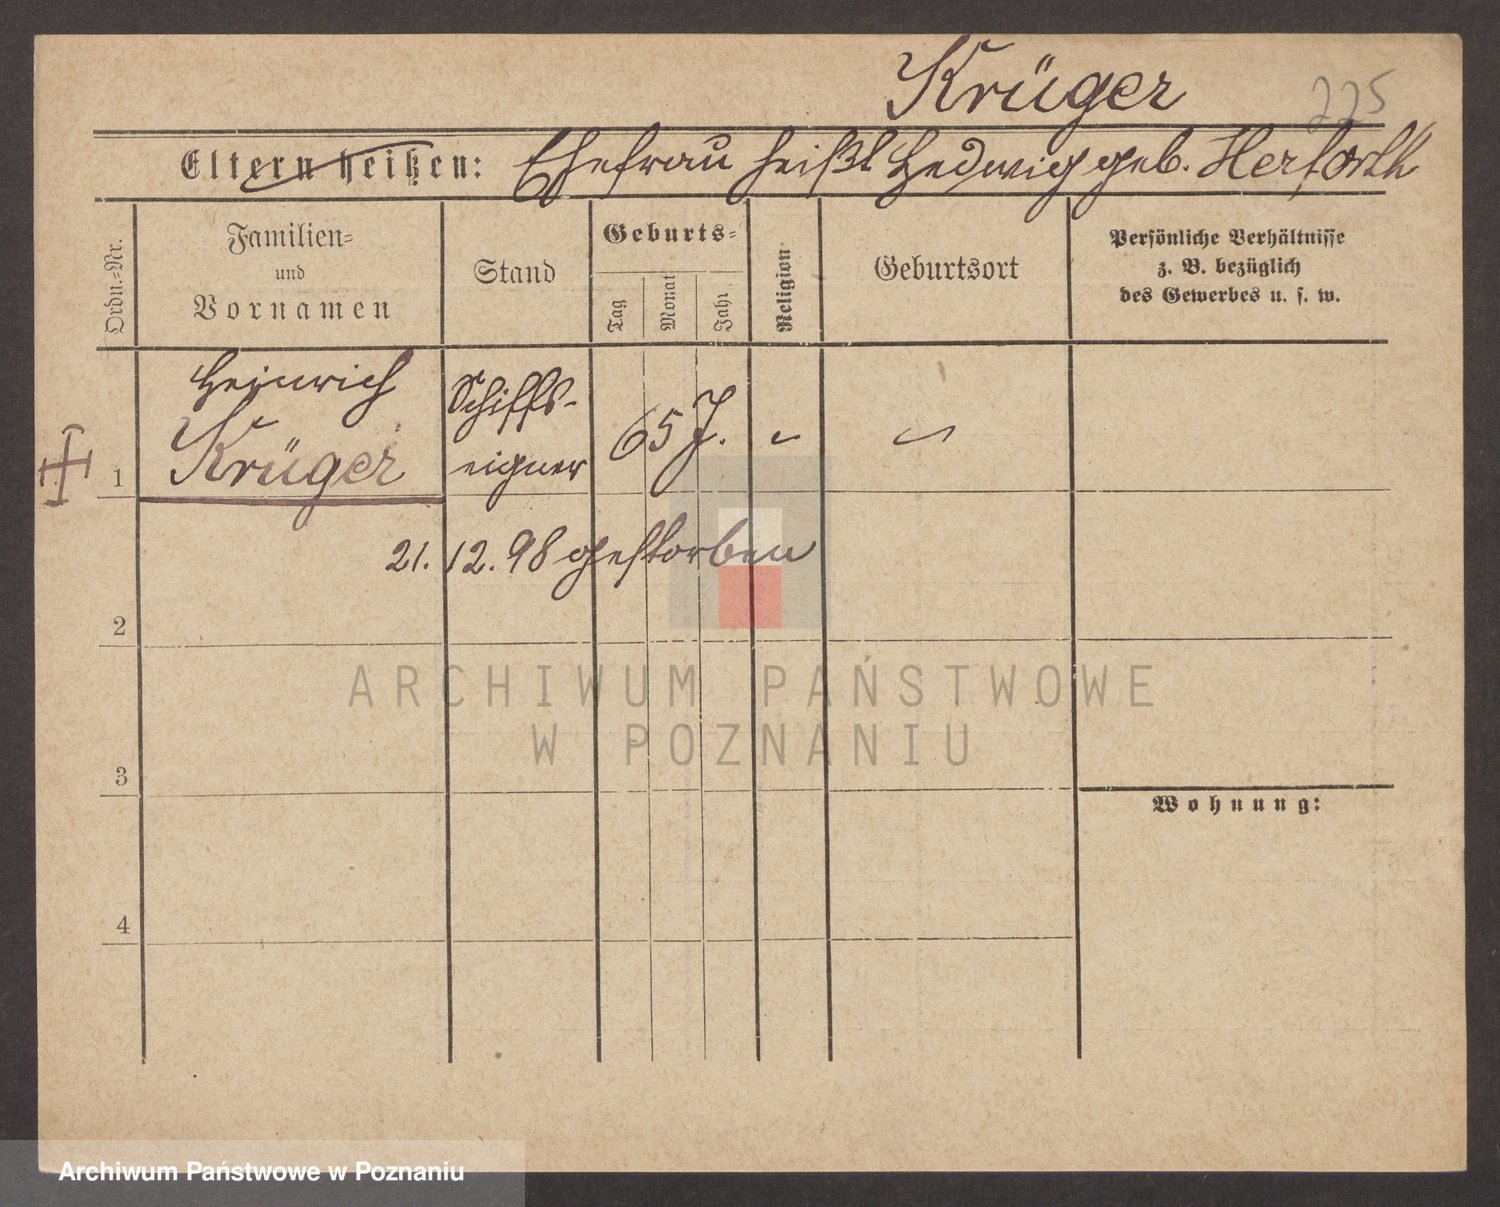 Krüger
225
Eltern heißen: Ehefrau heißt Hedwig geb. Herforth
Ordn.-Nr.
Familien-
und
Vornamen
Stand
Geburts-
Tag
Monat
Jahr
Religion
Geburtsort
Persönliche Verhältnisse
z. B. bezüglich
des Gewerbes u. s. w.
1
Heinrich
Krüger
Schiffs-
eigner
65 J.
21.12.98 gestorben
2
3
4
Wohnung:
ARCHIWUM PAŃSTWOWE
W POZNANIU
Archiwum Państwowe w Poznaniu